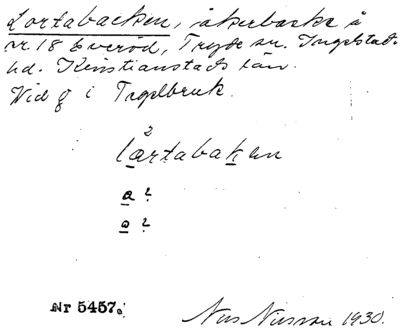 Lortabacken, åkerbacke å
nr 18 Everöd, Tryde sn. Ingelstads
hd. Kristianstads län.
Wid g i Tegelbruk.
2
lartabaken
a ?
o ?
Nr 5457.
Nils Nilsson 1930.